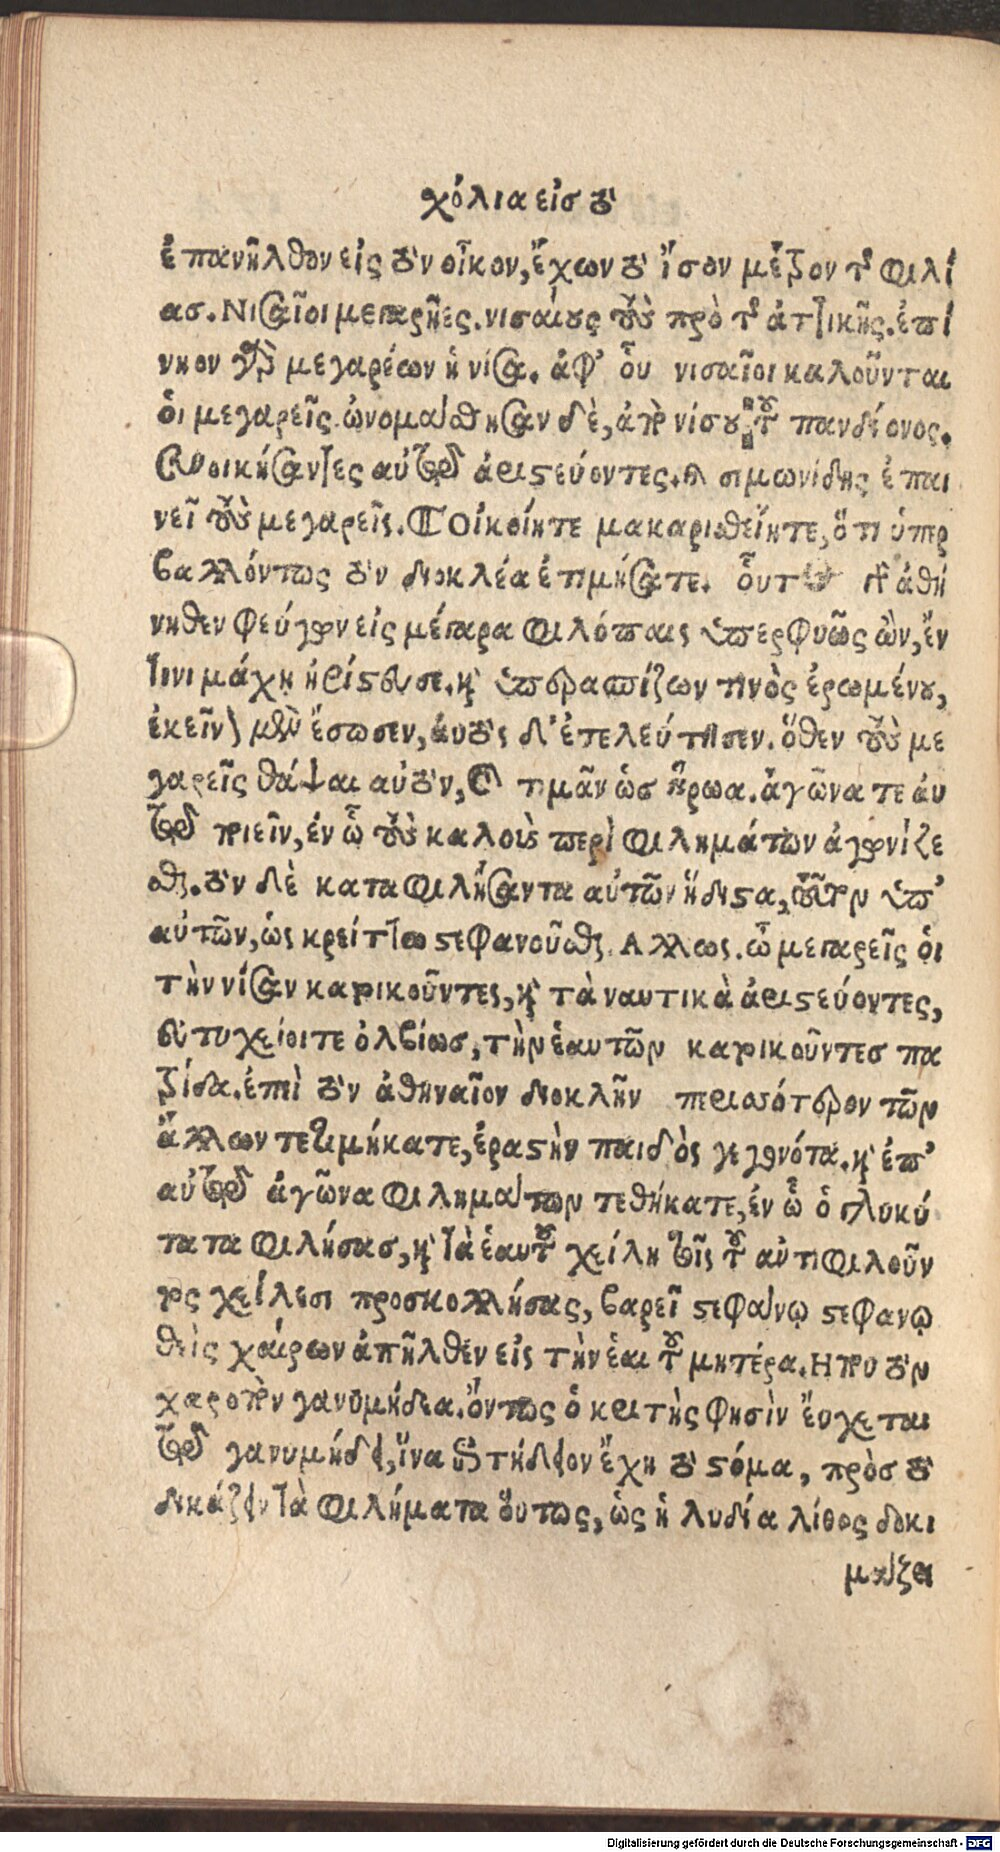 χόλια εἰσ τὸ
ἐπανῆλθον εἰς τὸν οἶκον, ἔχων τὸ ἴσον μέτρον τῆς φιλί
ασ. Νισαῖοι μεγαρῆες. νισαίους τοὺς πρὸ τῆς ἀττικῆς. ἐπί
νηον γὰρ μεγαρέων ἡ νίσα. ἀφ' οὗ νισαῖοι καλοῦνται
ὁι μεγαρεῖς. ὠνομάσθησαν δὲ, ἀπὸ νίσου τοῦ πανδίονος.
συνοικήσαντες αὐτῷ ἀριστεύοντες. καὶ σιμωνίδης ἐπαι
νεῖ τοὺς μεγαρεῖς. Οἰκοίητε μακαρισθείητε, ὅτι ὑπερ
βαλλόντως τὸν διοκλέα ἐτιμήσατε. οὗτος ἀθή
νηθεν φεύγων εἰς μέγαρα φιλόπαις ὑπερφυῶς ὢν, ἔν
τινι μάχῃ ἠρίστευσε. καὶ ὑπερασπίζων τινὸς ἐρωμένου,
ἐκεῖνον μὲν ἔσωσεν, ἀυτὸς δ' ἐτελεύτησεν. ὅθεν τοὺς με
γαρεῖς θάψαι αὐτὸν, καὶ τιμᾶν ὡσ ἥρωα. ἀγῶνα τε ἀυ
τῷ ποιεῖν, ἐν ᾧ τοὺς καλοὺς περὶ φιλημάτων ἀγωνίζε
σθαι. τὸν δὲ καταφιλήσαντα αὐτῶν ἥδιστα, τοῦτον ὑπ'
αὐτῶν, ὡς κρείττω στεφανοῦσθαι. Αλλως. ὦ μεγαρεῖς ὁι
τὴν νίσαν κατοικοῦντες, καὶ τὰ ναυτικὰ ἀριστεύοντες,
εὐτυχείοιτε ὀλβίωσ, τὴν ἑαυτῶν κατοικοῦντεσ πα
τρίδα. ἐπεὶ τὸν ἀθηναῖον διοκλῆν περισσότερον τῶν
ἄλλων τετιμήκατε, ἐραστὴν παιδὸς γεγονότα. καὶ ἐπ'
αὐτῷ ἀγῶνα φιλημάτων τεθήκατε, ἐν ᾧ ὁ γλυκύ
τατα φιλήσασ, καὶ τὰ ἑαυτοῦ χείλη τοῖς τοῦ αὐτι φιλοῦν
τος χείλεσι προσκολλήσας, βαρεῖ στεφάνῳ στεφανῳ
θεὶς χαίρων ἀπῆλθεν εἰς τὴν ἑαυτοῦ μητέρα. Η που τὸν
χαροπὸν γανυμήδεα. ὄντως ὁ κριτὴς φησὶν ἔυχεται
τῷ γανυμήδει, ἵνα ἐπιτήδειον ἔχῃ τὸ στόμα, πρὸσ τὸ
δικάζειν τὰ φιλήματα ὅυτως, ὡς ἡ λυδία λίθος δοκι
μάζει
Digitalisierung gefördert durch die Deutsche Forschungsgemeinschaft - DFG